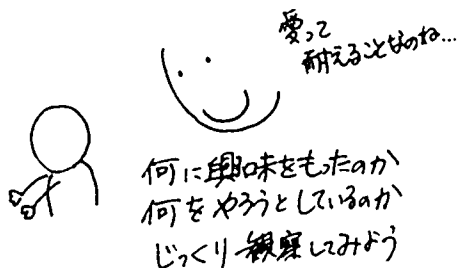 愛って
耐えることなのね…
何に興味をもったのか
何をやろうとしているのか
じっくり観察してみよう